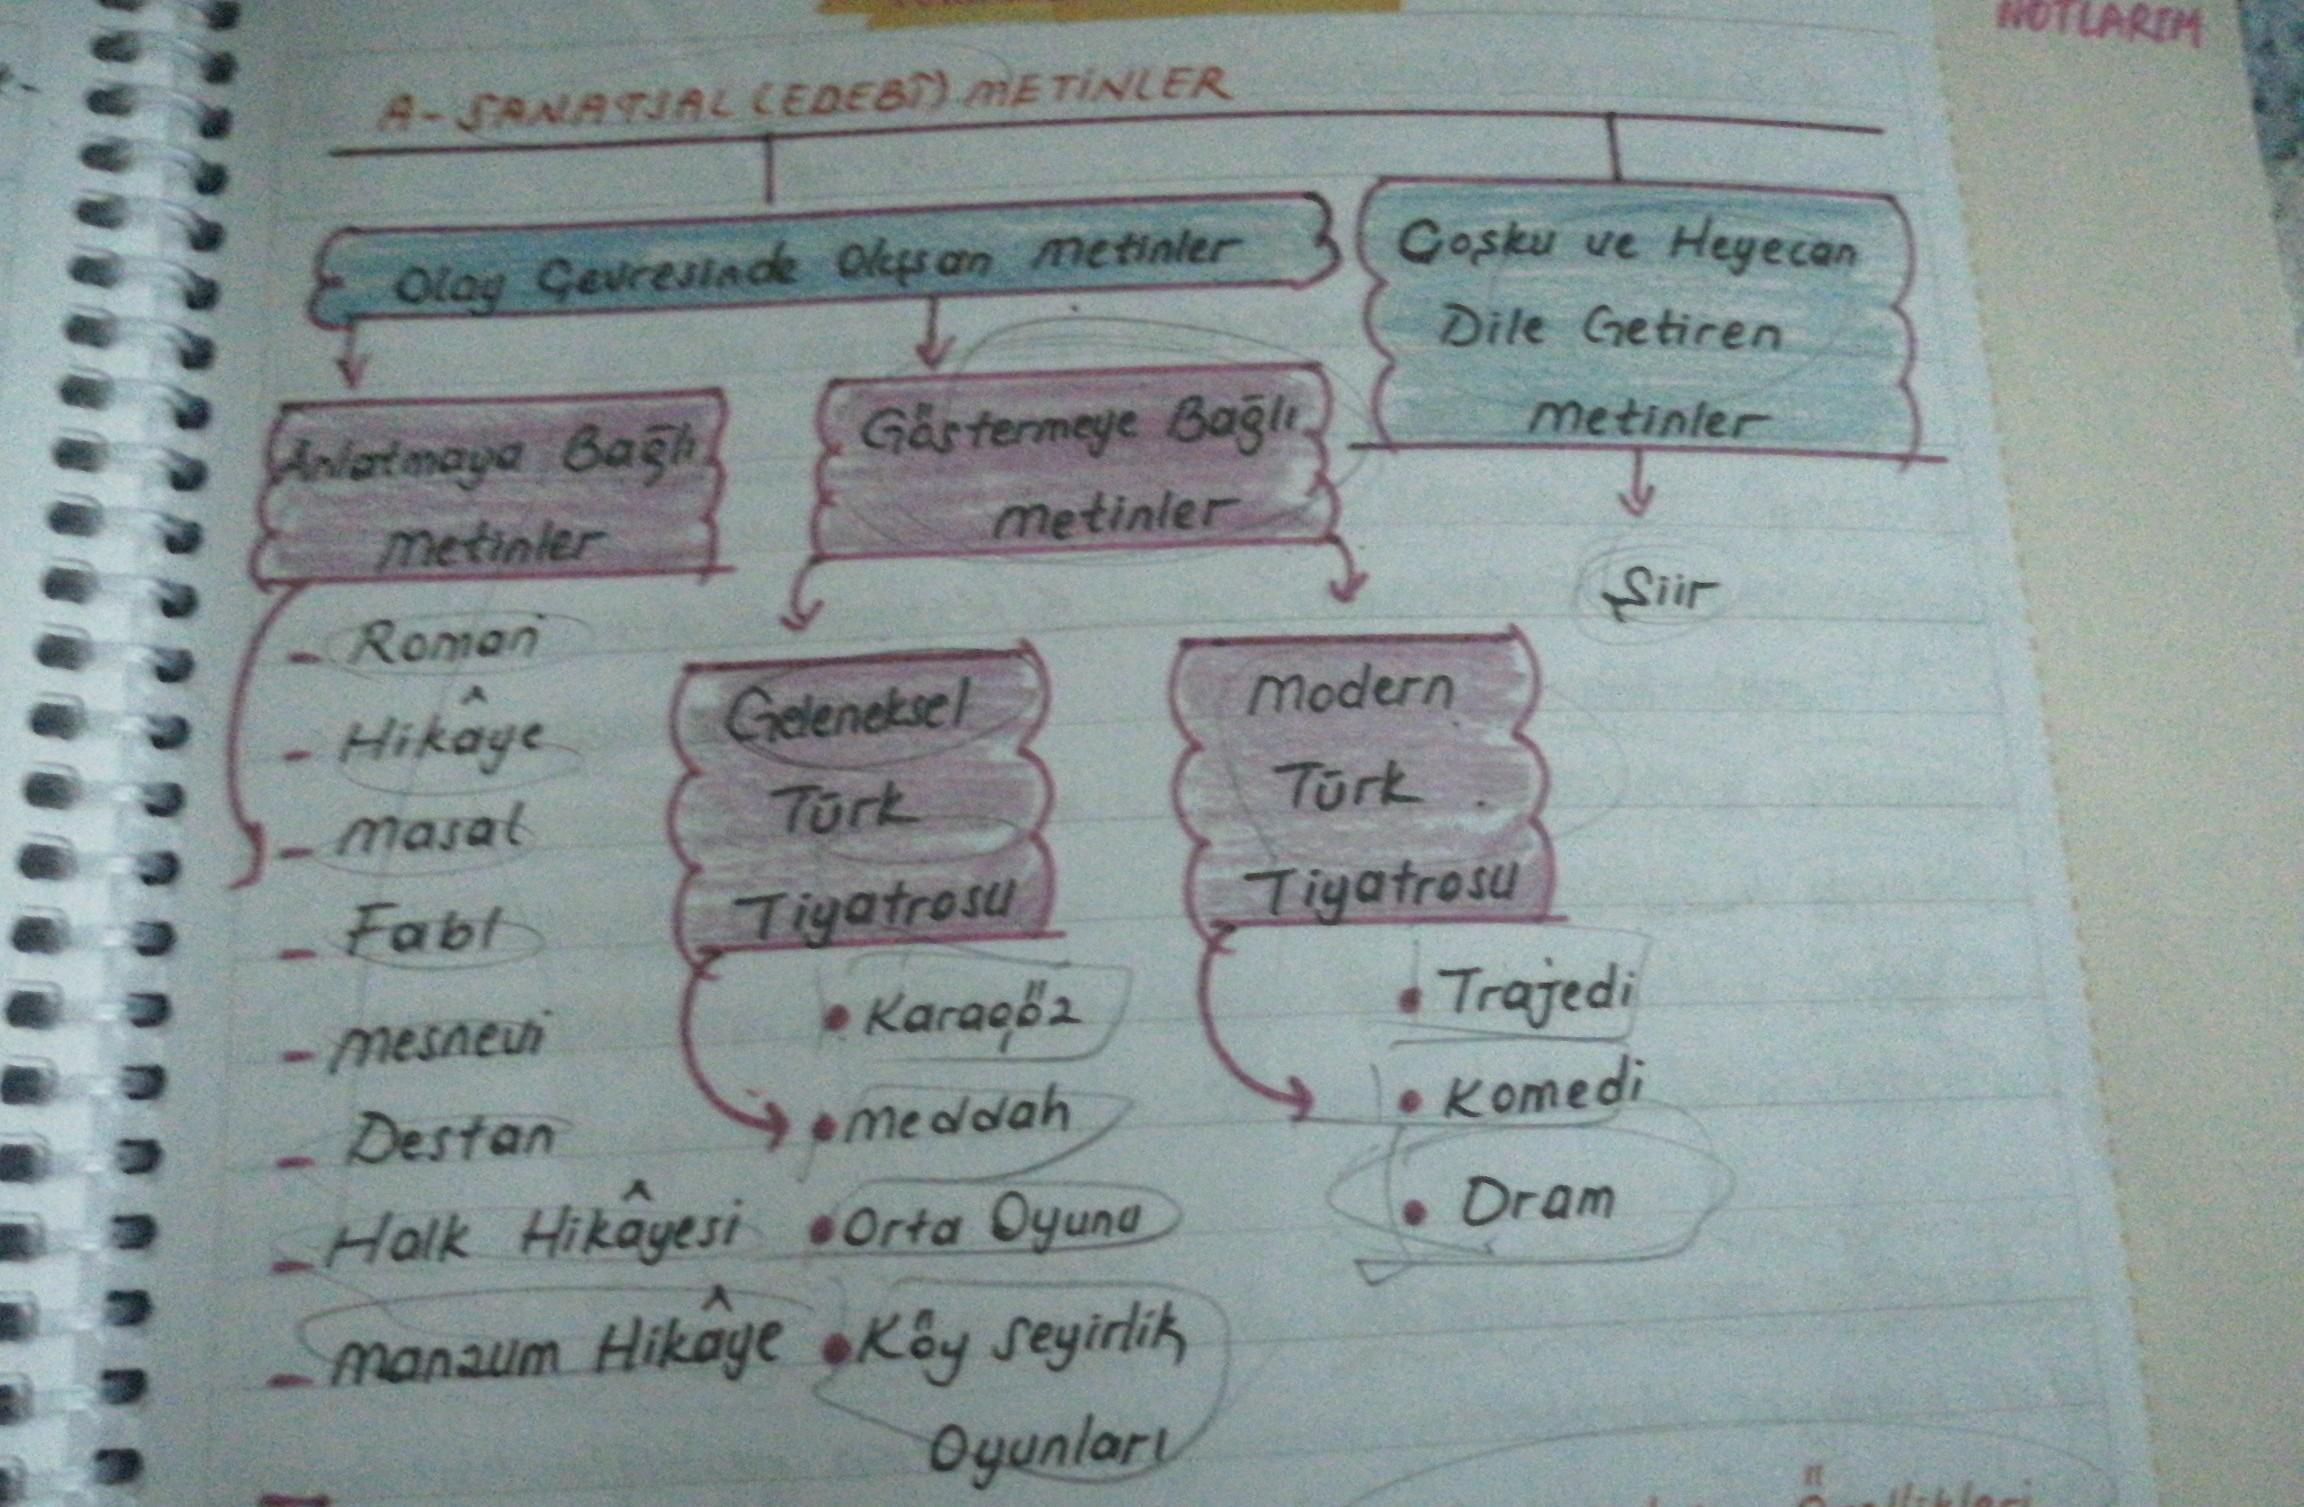 NOTLARIM
A- SANATSAL (EDEBÎ) METİNLER
Olay Çevresinde Oluşan Metinler
Coşku ve Heyecan
Dile Getiren
Metinler
Şiir
Anlatmaya Bağlı
Metinler
- Roman
- Hikâye
- Masal
- Fabl
- Mesnevi
- Destan
- Halk Hikâyesi
- Manzum Hikâye
Göstermeye Bağlı
Metinler
Geleneksel
Türk
Tiyatrosu
• Karagöz
• Meddah
• Orta Oyunu
• Köy Seyirlik
Oyunları
Modern
Türk
Tiyatrosu
• Trajedi
• Komedi
• Dram